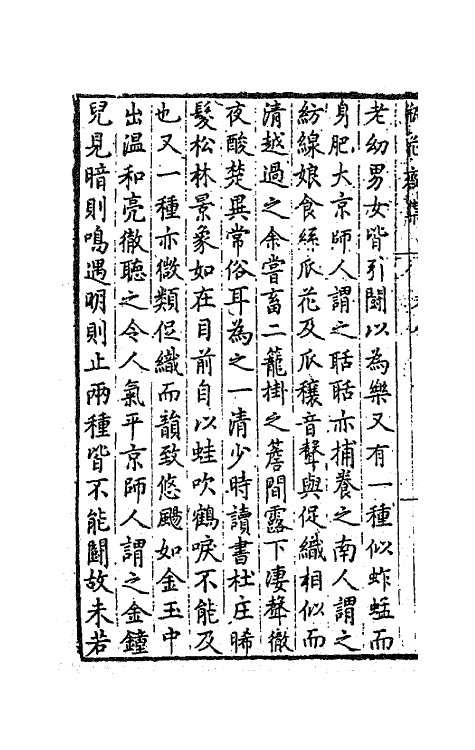 老幼男女皆引鬪以為樂又有一種似蚱蜢而
身肥大京師人謂之聒聒亦捕養之南人謂之
紡線娘食絲瓜花及瓜穰音聲與促織相似而
清越過之余嘗畜二籠掛之簷間露下淒聲徹
夜酸楚異常俗耳為之一清少時讀書杜庄晞
髮松林景象如在目前自以蛙吹鶴唳不能及
也又一種亦微類促織而韻致悠颺如金玉中
出温和亮徹聽之令人氣平京師人謂之金鐘
兒見暗則鳴遇明則止兩種皆不能鬪故未若